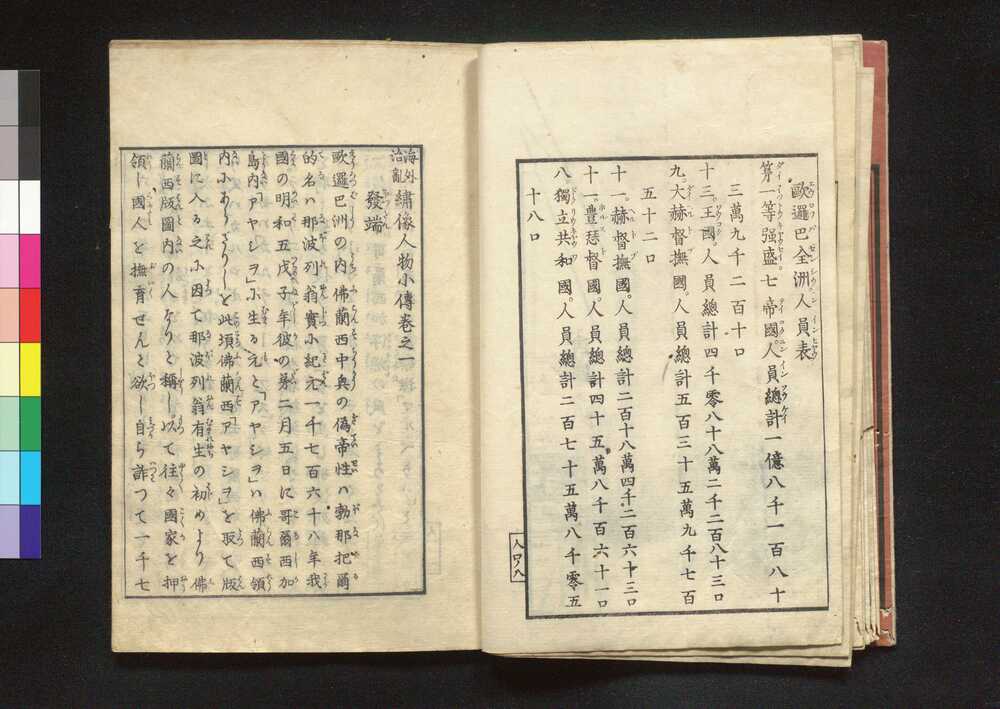 歐邏巴全洲人員表
第一等强盛七帝國。人員總計一億八千一百八十
三萬九千二百十口
十三。王國。人員總計四千零八十八萬二千二百八十三口
九。大赫督撫國。人員總計五百三十五萬九千七百
五十二口
十一。赫督撫國。人員總計二百十八萬四千二百六十三口
十一。豊瑟督國。人員總計四十五萬八千百六十一口
八獨立共和國。人員總計二百七十五萬八千零五
十八口
人口ノ八
海外治亂繡像人物小傳卷之一
發端
歐邏巴洲の内佛蘭西中興の僞帝性ハ勃那把爾
的名ハ那波列翁實小紀元一千七百六十八年我
國の明和五戊子年彼の第二月五日に哥爾西加
島内「アヤシヲ」小生る元と「アヤシヲ」ハ佛蘭西領
内小ありしを此頃佛蘭西「アヤシヲ」を取て版
圖に入る之小因て那波列翁有生の初めより佛
蘭西版圖内の人なりと稱し以て往々國家を押
領し國人を撫育せんと欲し自ら詐つて一千七